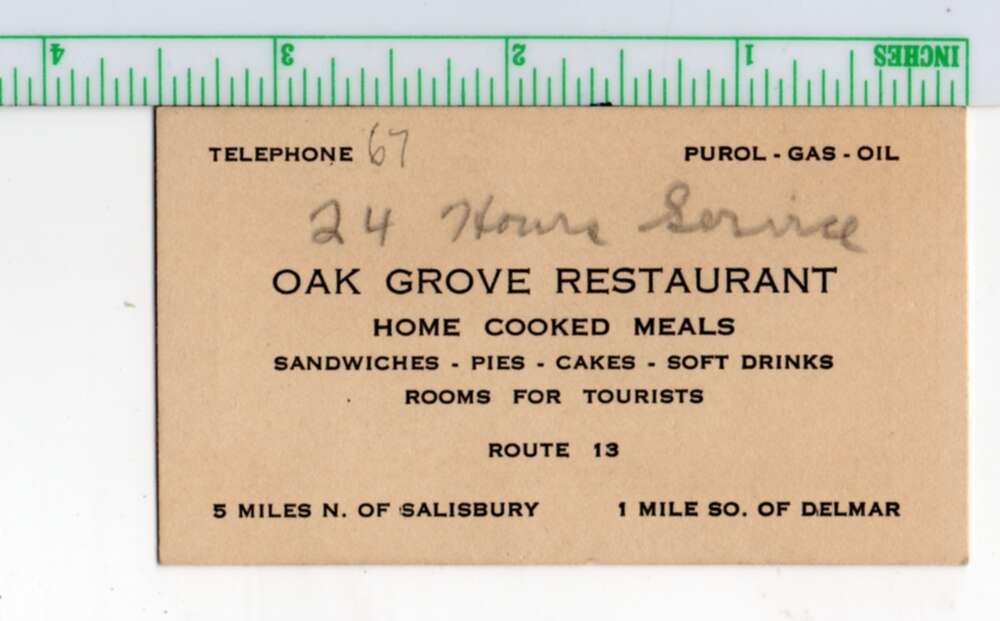 4 3 2 1 INCHES
TELEPHONE 67 PUROL - GAS - OIL
24 Hours Service
OAK GROVE RESTAURANT
HOME COOKED MEALS
SANDWICHES - PIES - CAKES - SOFT DRINKS
ROOMS FOR TOURISTS
ROUTE 13
5 MILES N. OF SALISBURY 1 MILE SO. OF DELMAR